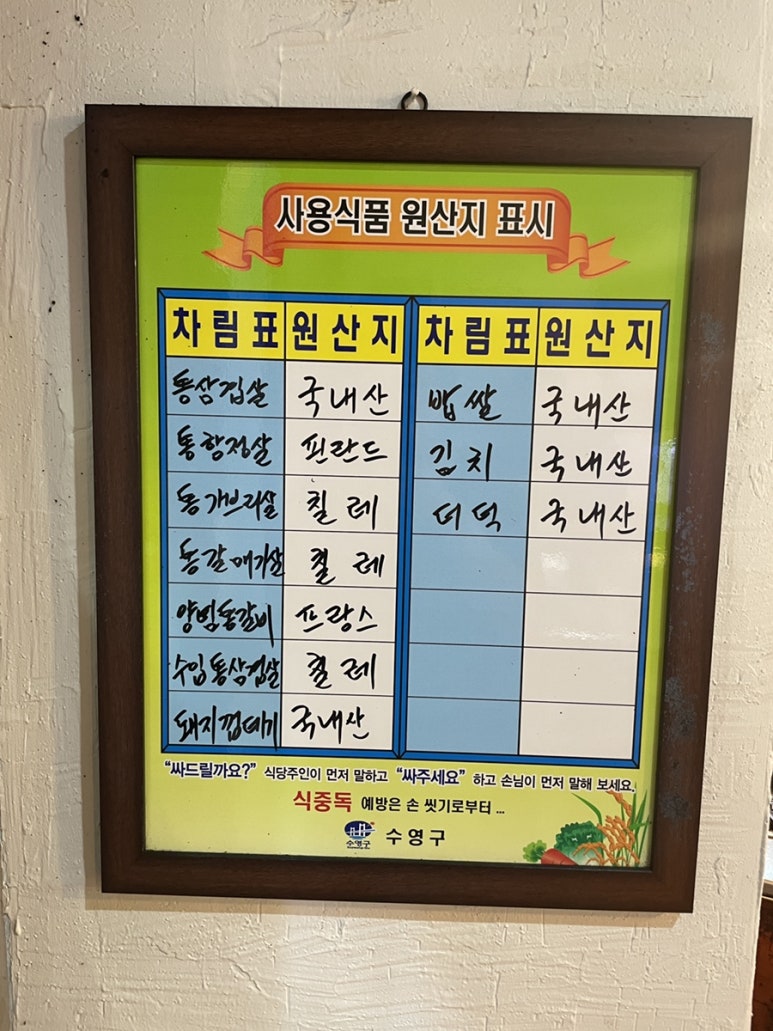 사용식품 원산지 표시
차림표 원산지 차림표 원산지
통삼겹살 국내산 밥쌀 국내산
통항정살 핀란드 김치 국내산
통가브리살 칠레 더덕 국내산
통갈매기살 칠레
양념통갈비 프랑스
수입통삼겹살 칠레
돼지껍데기 국내산
"싸드릴까요?" 식당주인이 먼저 말하고 "싸주세요" 하고 손님이 먼저 말해 보세요.
식중독 예방은 손 씻기로부터 ...
수영구 수영구